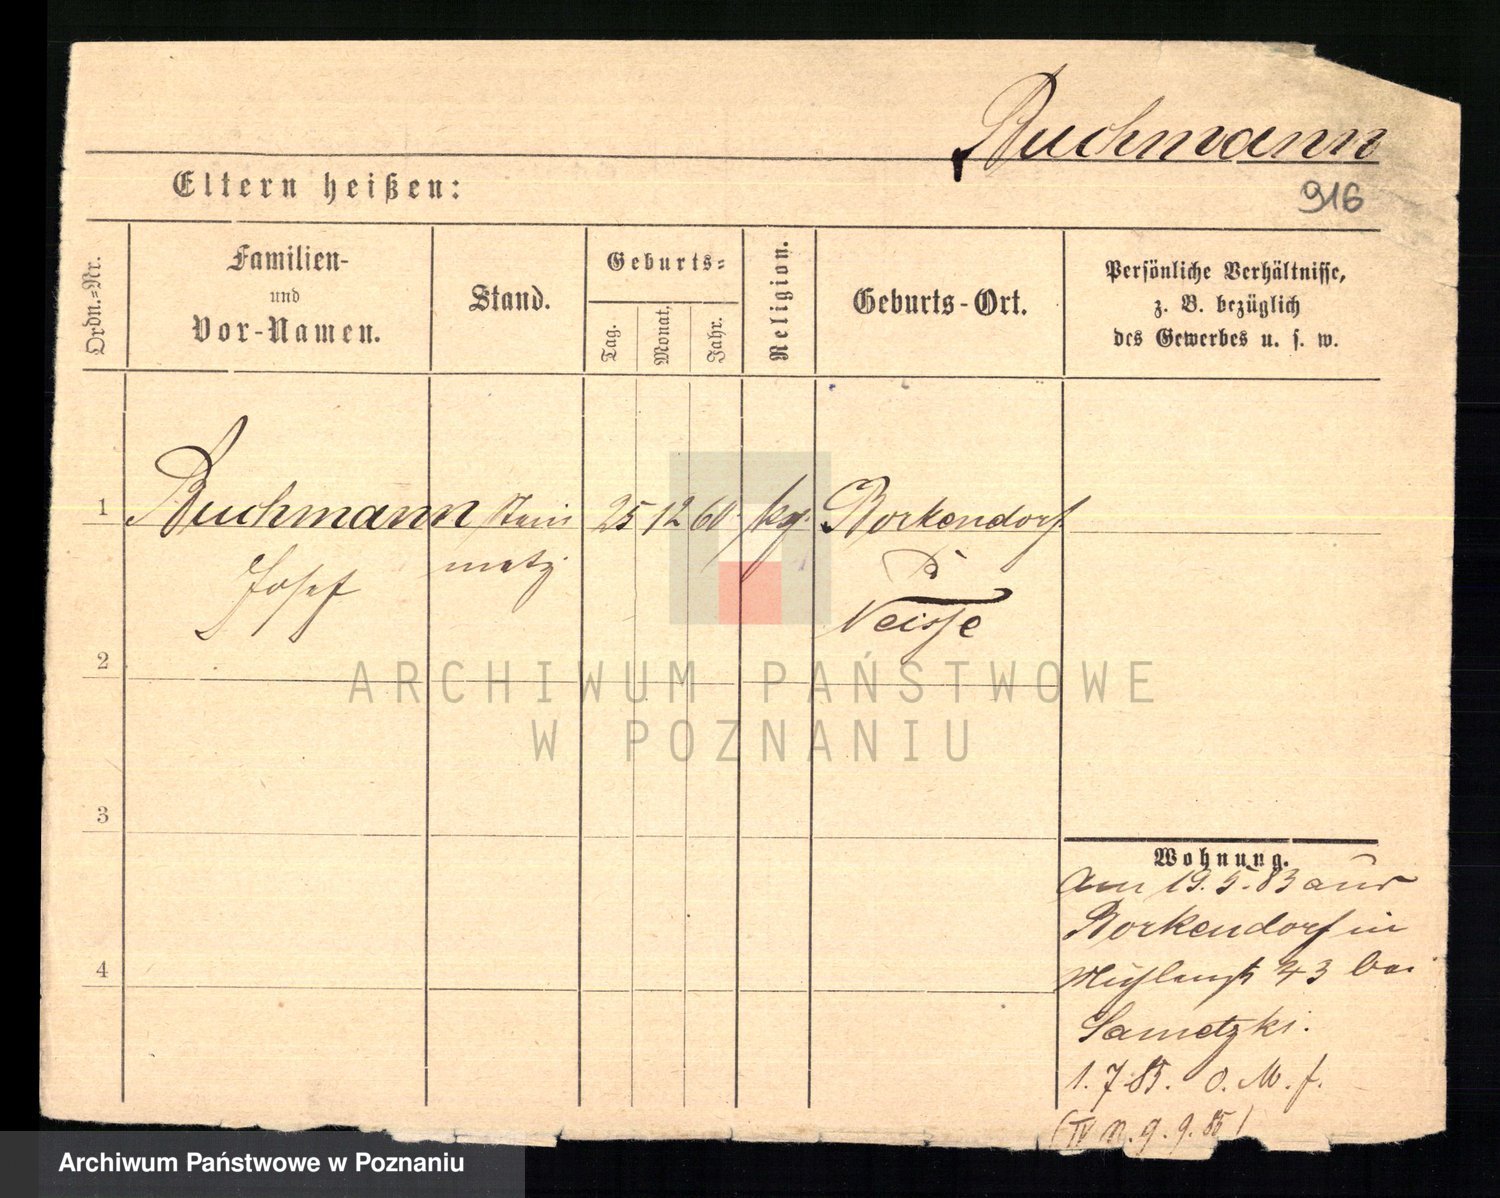 Buchmann
916
Eltern heißen:
Ordn.=Nr.
Familien-
und
Vor-Namen.
Stand.
Geburts=
Tag.
Monat.
Jahr.
Religion.
Geburts-Ort.
Persönliche Verhältnisse,
z. B. bezüglich
des Gewerbes u. s. w.
1
Buchmann Stein 25 12 60 kg. Borkendorf
Josef
metz
Neisse
2
ARCHIWUM PAŃSTWOWE
W POZNANIU
3
4
Wohnung.
Am 19.5.83 aus
Borkendorf in
43 bei
Sametzki.
1.7.85. O. M. f.
(IV n. g. 9. 85)
Archiwum Państwowe w Poznaniu